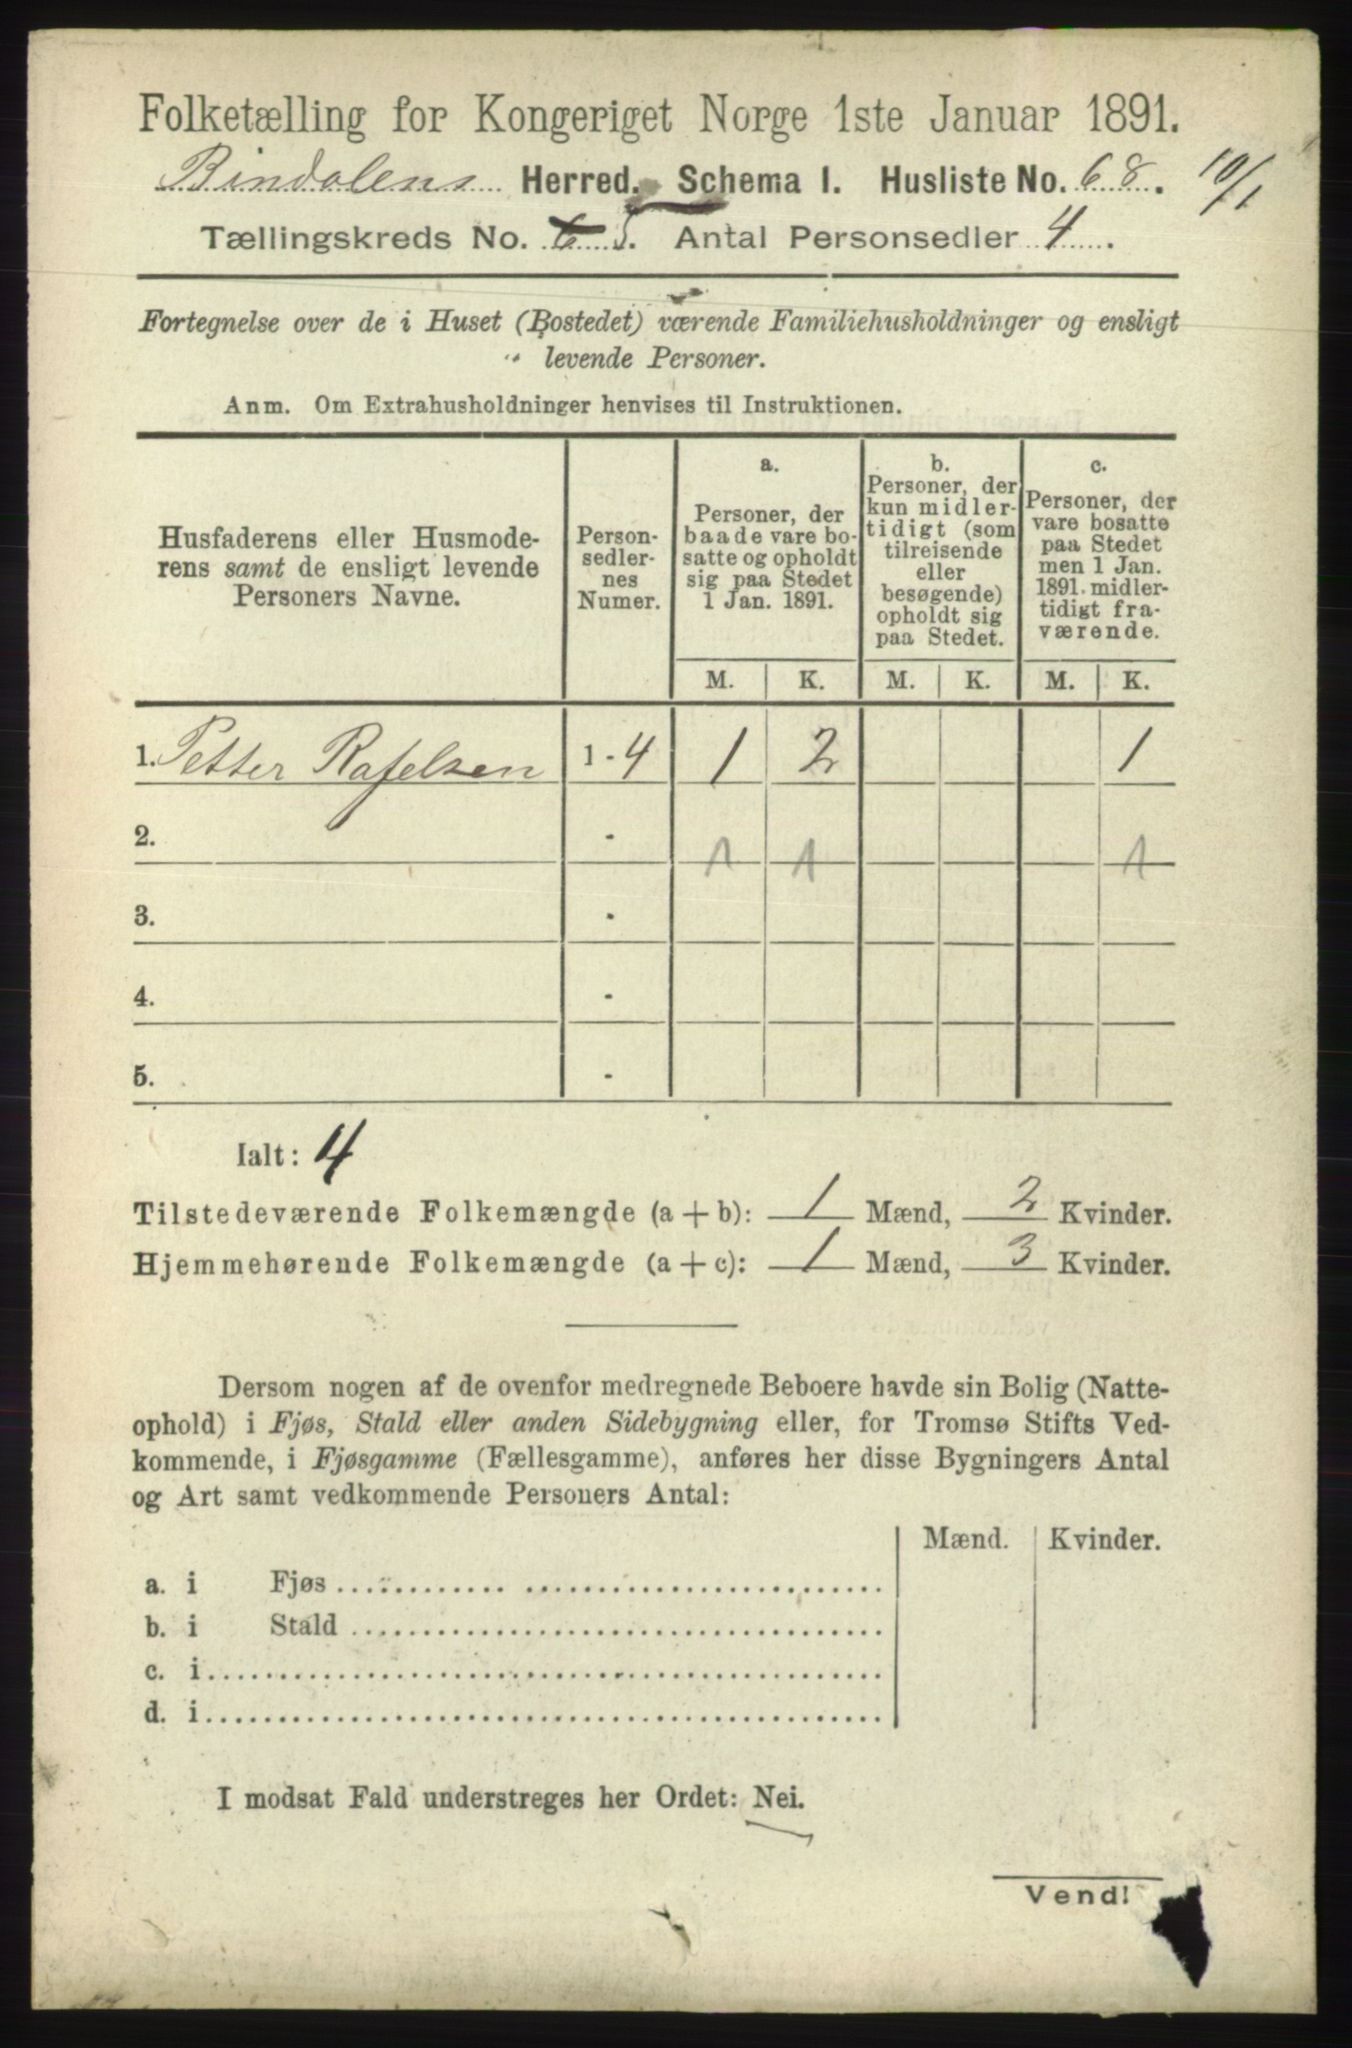 Folketælling for Kongeriget Norge 1ste Januar 1891.
Bindalens Herred. Schema I. Husliste No. 68. 10/1
Tællingskreds No. 6 5. Antal Personsedler 4.
Fortegnelse over de i Huset (Bostedet) værende Familiehusholdninger og ensligt
levende Personer.
Anm. Om Extrahusholdninger henvises til Instruktionen.
Husfaderens eller Husmode-
rens samt de ensligt levende
Personers Navne.
Person-
sedler-
nes
Numer.
a.
Personer, der
baade vare bo-
satte og opholdt
sig paa Stedet
1 Jan. 1891.
b.
Personer, der
kun midler-
tidigt (som
tilreisende
eller
besøgende)
opholdt sig
paa Stedet.
c.
Personer, der
vare bosatte
paa Stedet
men 1 Jan.
1891 midler-
tidigt fra-
værende.
M. K. M. K. M. K.
1. Petter Rafelsen 1-4 1 2 1
2. - 1 1 1
3. -
4. -
5. -
Ialt: 4
Tilstedeværende Folkemængde (a + b): 1 Mænd, 2 Kvinder.
Hjemmehørende Folkemængde (a + c): 1 Mænd, 3 Kvinder.
Dersom nogen af de ovenfor medregnede Beboere havde sin Bolig (Natte-
ophold) i Fjøs, Stald eller anden Sidebygning eller, for Tromsø Stifts Ved-
kommende, i Fjøsgamme (Fællesgamme), anføres her disse Bygningers Antal
og Art samt vedkommende Personers Antal:
Mænd. Kvinder.
a. i Fjøs
b. i Stald
c. i
d. i
I modsat Fald understreges her Ordet: Nei.
Vend!